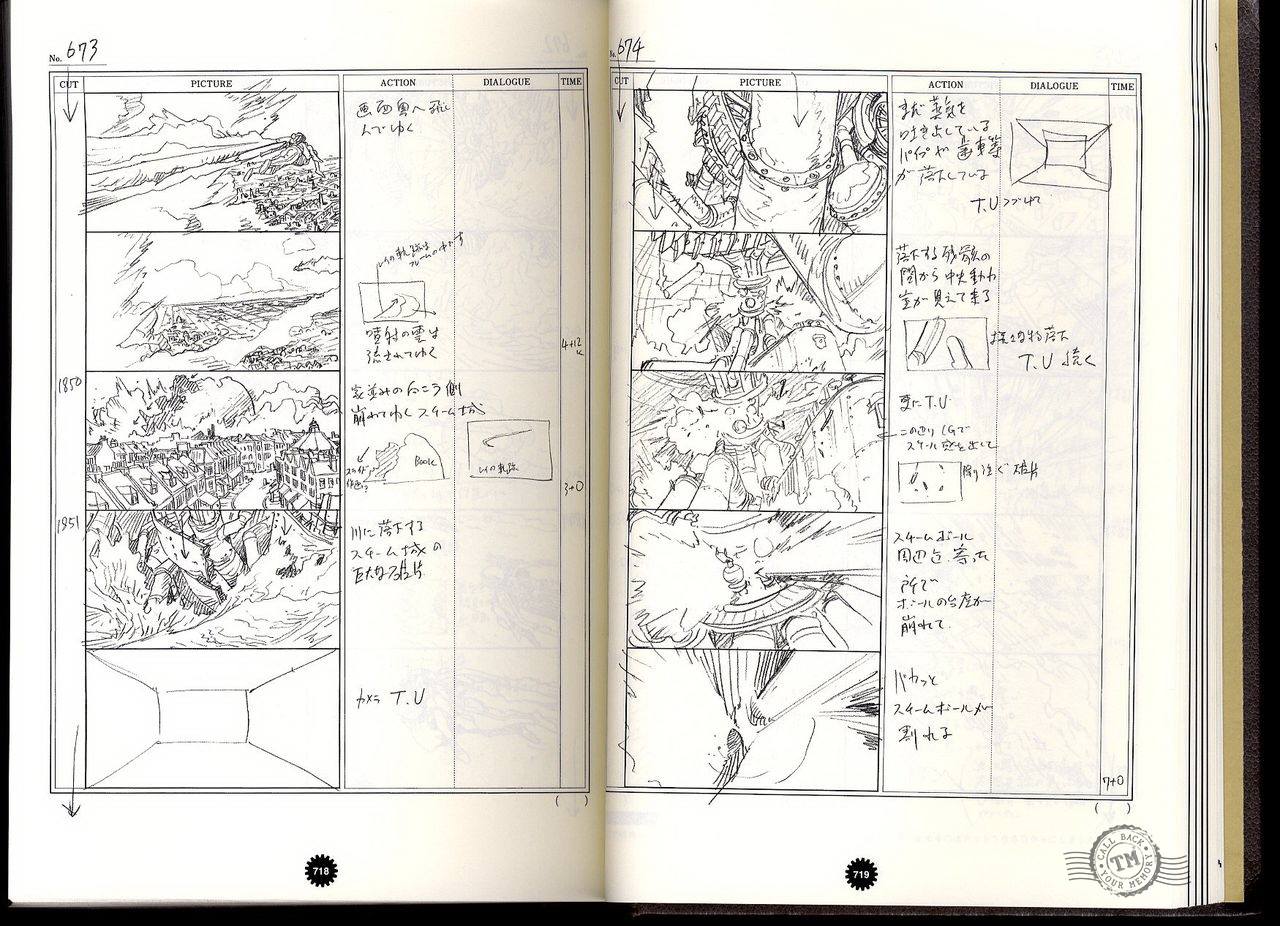 No. 673
CUT
PICTURE
ACTION
DIALOGUE
TIME
画面奥へ飛
んでゆく
レイの軌跡は
フレームの中です
噴射の雲は
流されてゆく
4+12
1850
家並みの向こう側
崩れてゆくスチーム城
Book
レイの軌跡
3+0
1851
川に落下する
スチーム城の
巨大な破片
カメラ T.U
( )
718
No. 674
CUT
PICTURE
ACTION
DIALOGUE
TIME
まだ蒸気を
吹き出している
パイプや歯車等
が落下している
T.U つづけて
落下する残骸の
間から中央動力
室が見えて来る
落下
T.U 続く
更にT.U
スケール感を出して
降り注ぐ破片
スチームボール
周辺迄寄った
所で
ボールの台座が
崩れて
パカッと
スチームボールが
割れる
7+0
( )
719
CALL BACK
TM
YOUR MEMORY